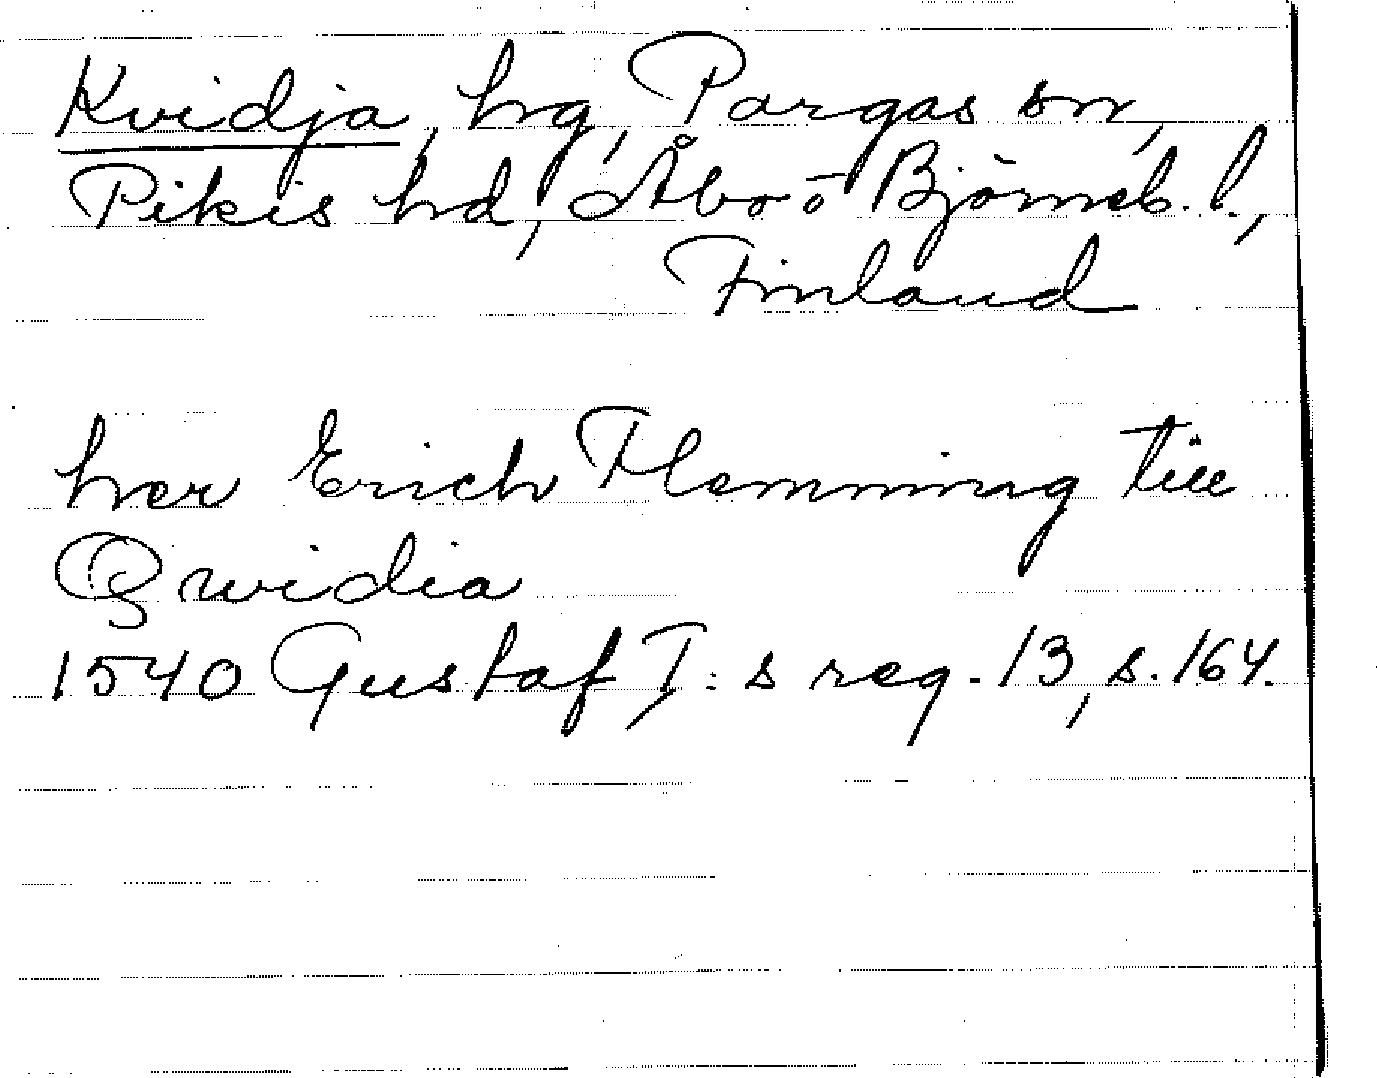 Kvidja, hg, Pargas sn,
Pikis hd, Åbo o Björneb. l.,
Finland
her Erich Flemming till
Qwidia
1540 Gustaf I:s reg. 13, s. 164.